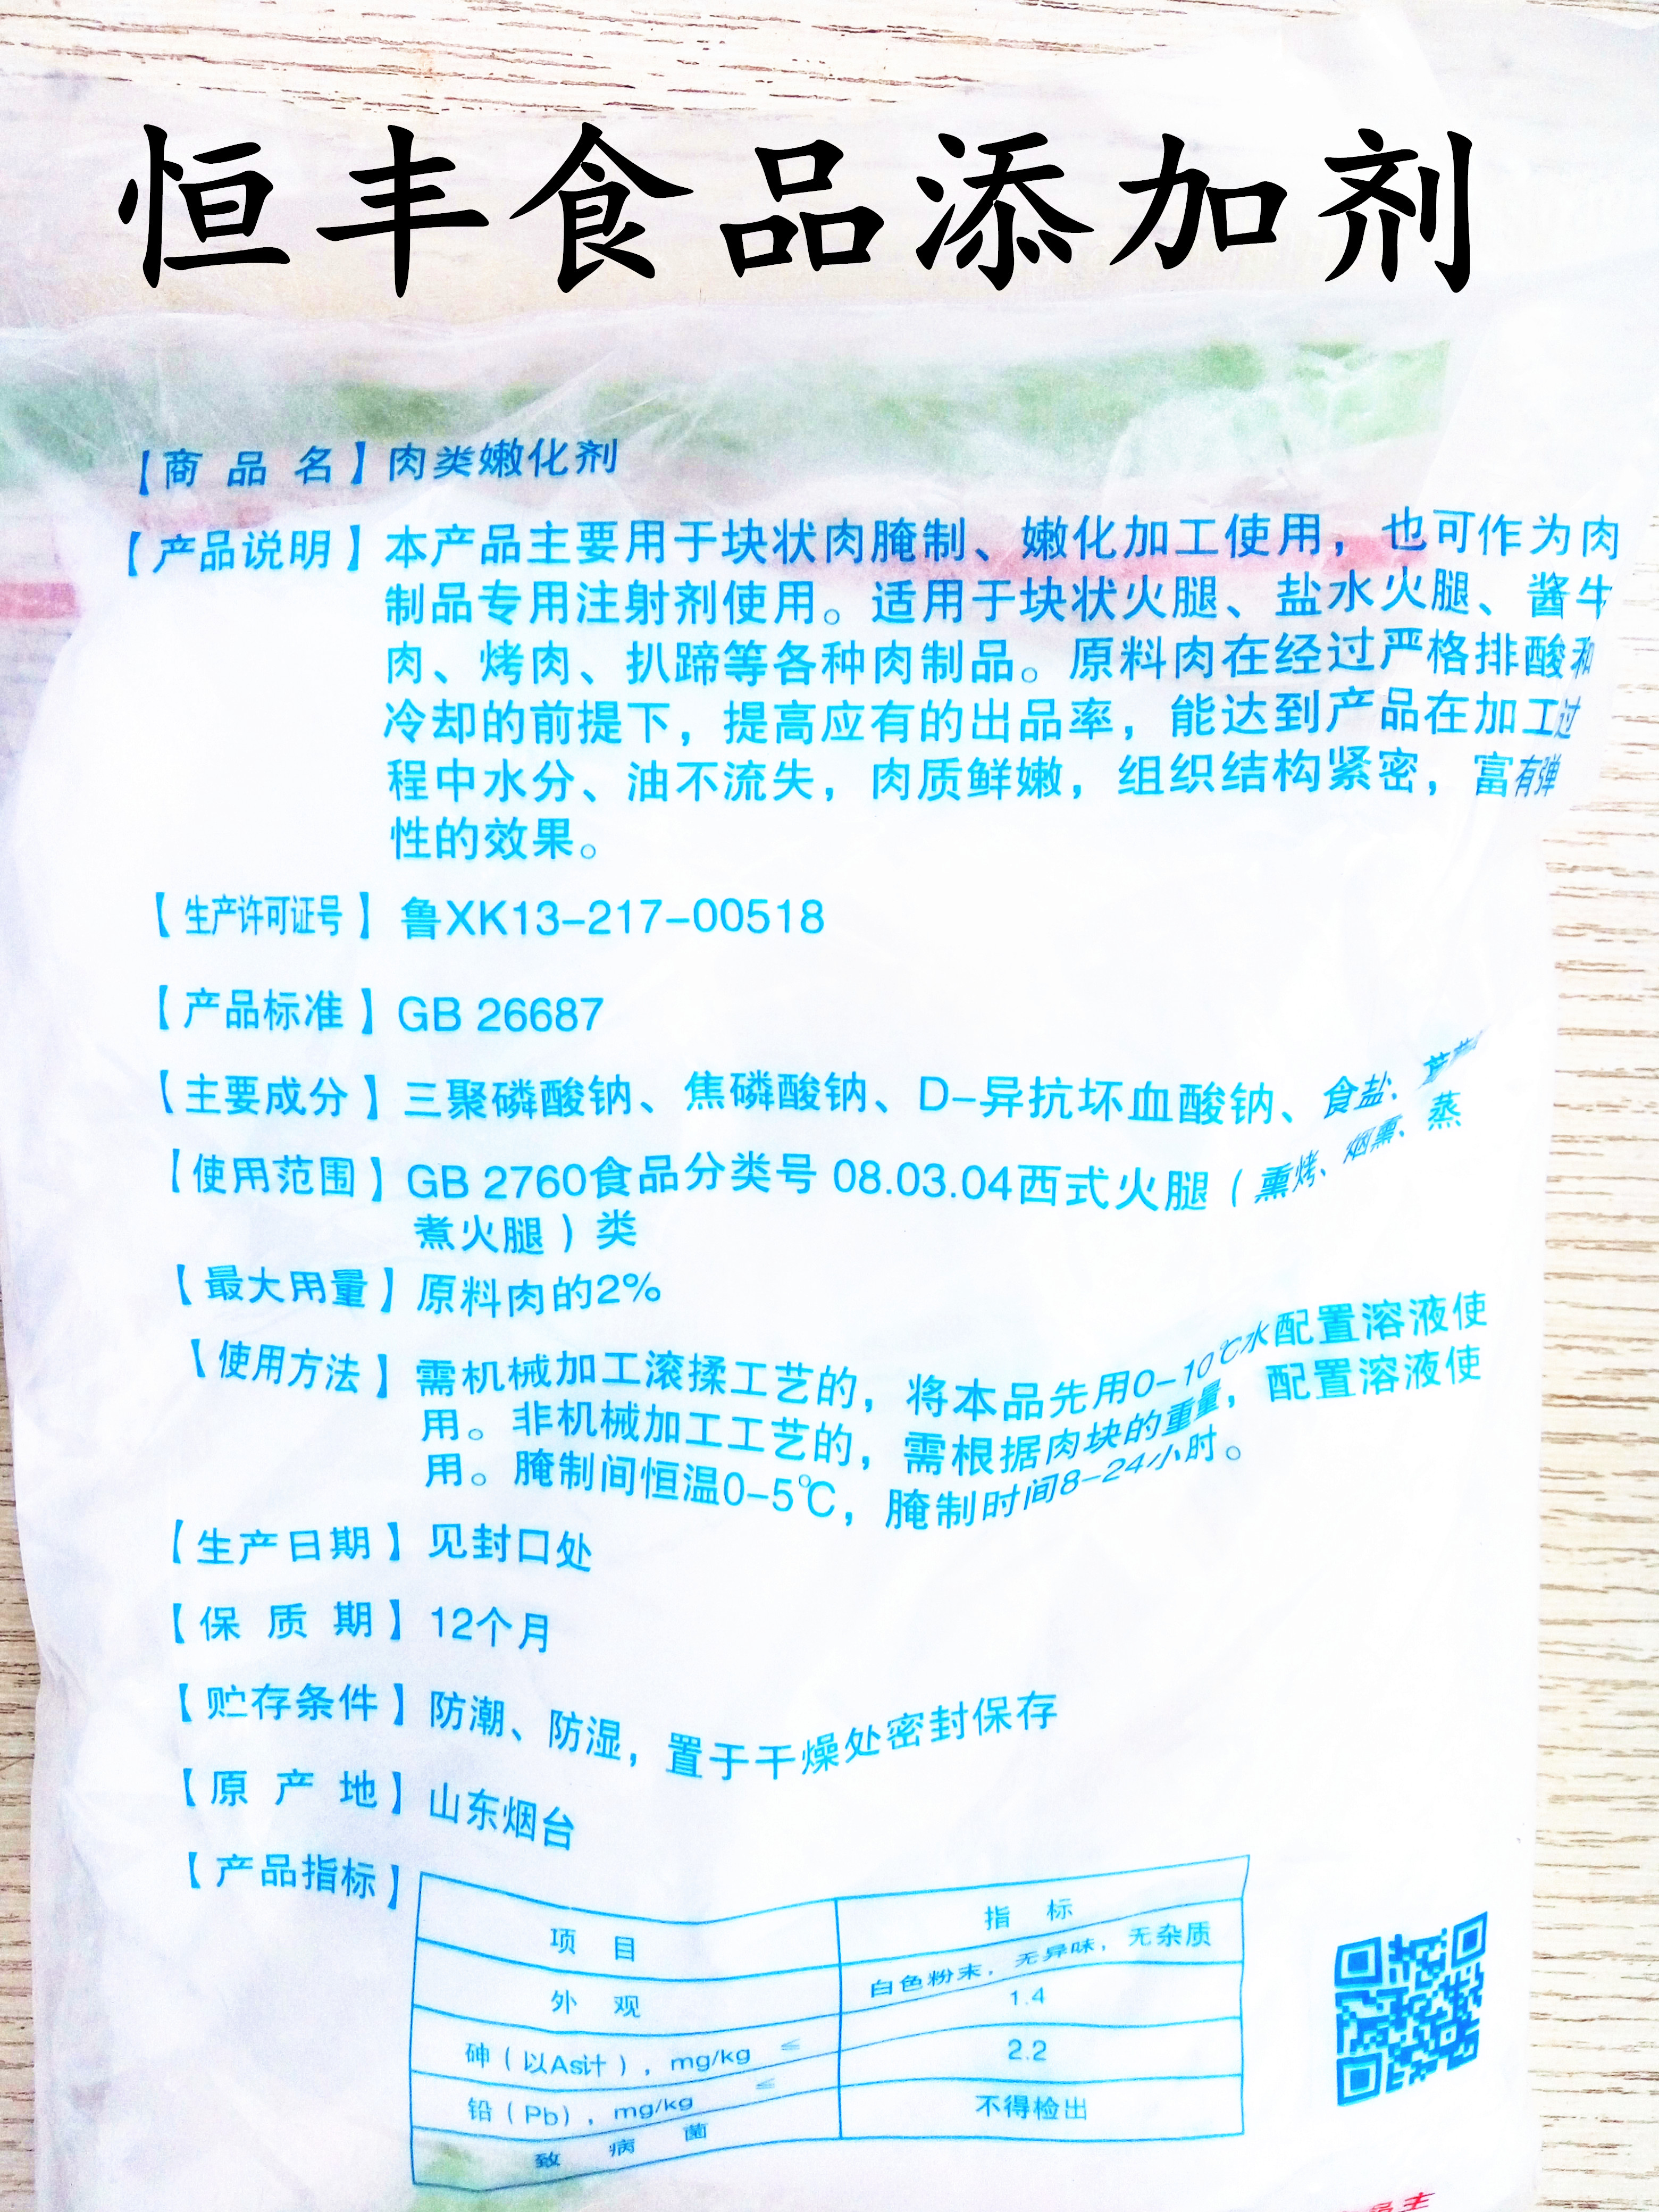 恒丰食品添加剂
【商品名】肉类嫩化剂
【产品说明】本产品主要用于块状肉腌制、嫩化加工使用，也可作为肉
制品专用注射剂使用。适用于块状火腿、盐水火腿、酱牛
肉、烤肉、扒蹄等各种肉制品。原料肉在经过严格排酸和
冷却的前提下，提高应有的出品率，能达到产品在加工过
程中水分、油不流失，肉质鲜嫩，组织结构紧密，富有弹
性的效果。
【生产许可证号】鲁XK13-217-00518
【产品标准】GB 26687
【主要成分】三聚磷酸钠、焦磷酸钠、D-异抗坏血酸钠、食盐、
【使用范围】GB 2760食品分类号 08.03.04西式火腿（熏烤、烟熏、蒸
煮火腿）类
【最大用量】原料肉的2%
【使用方法】需机械加工滚揉工艺的，将本品先用0-10℃水配置溶液使
用。非机械加工工艺的，需根据肉块的重量，配置溶液使
用。腌制间恒温0-5℃，腌制时间8-24小时。
【生产日期】见封口处
【保质期】12个月
【贮存条件】防潮、防湿，置于干燥处密封保存
【原产地】山东烟台
【产品指标】
项目 指标
外观 白色粉末，无异味，无杂质
砷（以As计），mg/kg ≤ 1.4
铅（Pb），mg/kg ≤ 2.2
致病菌 不得检出